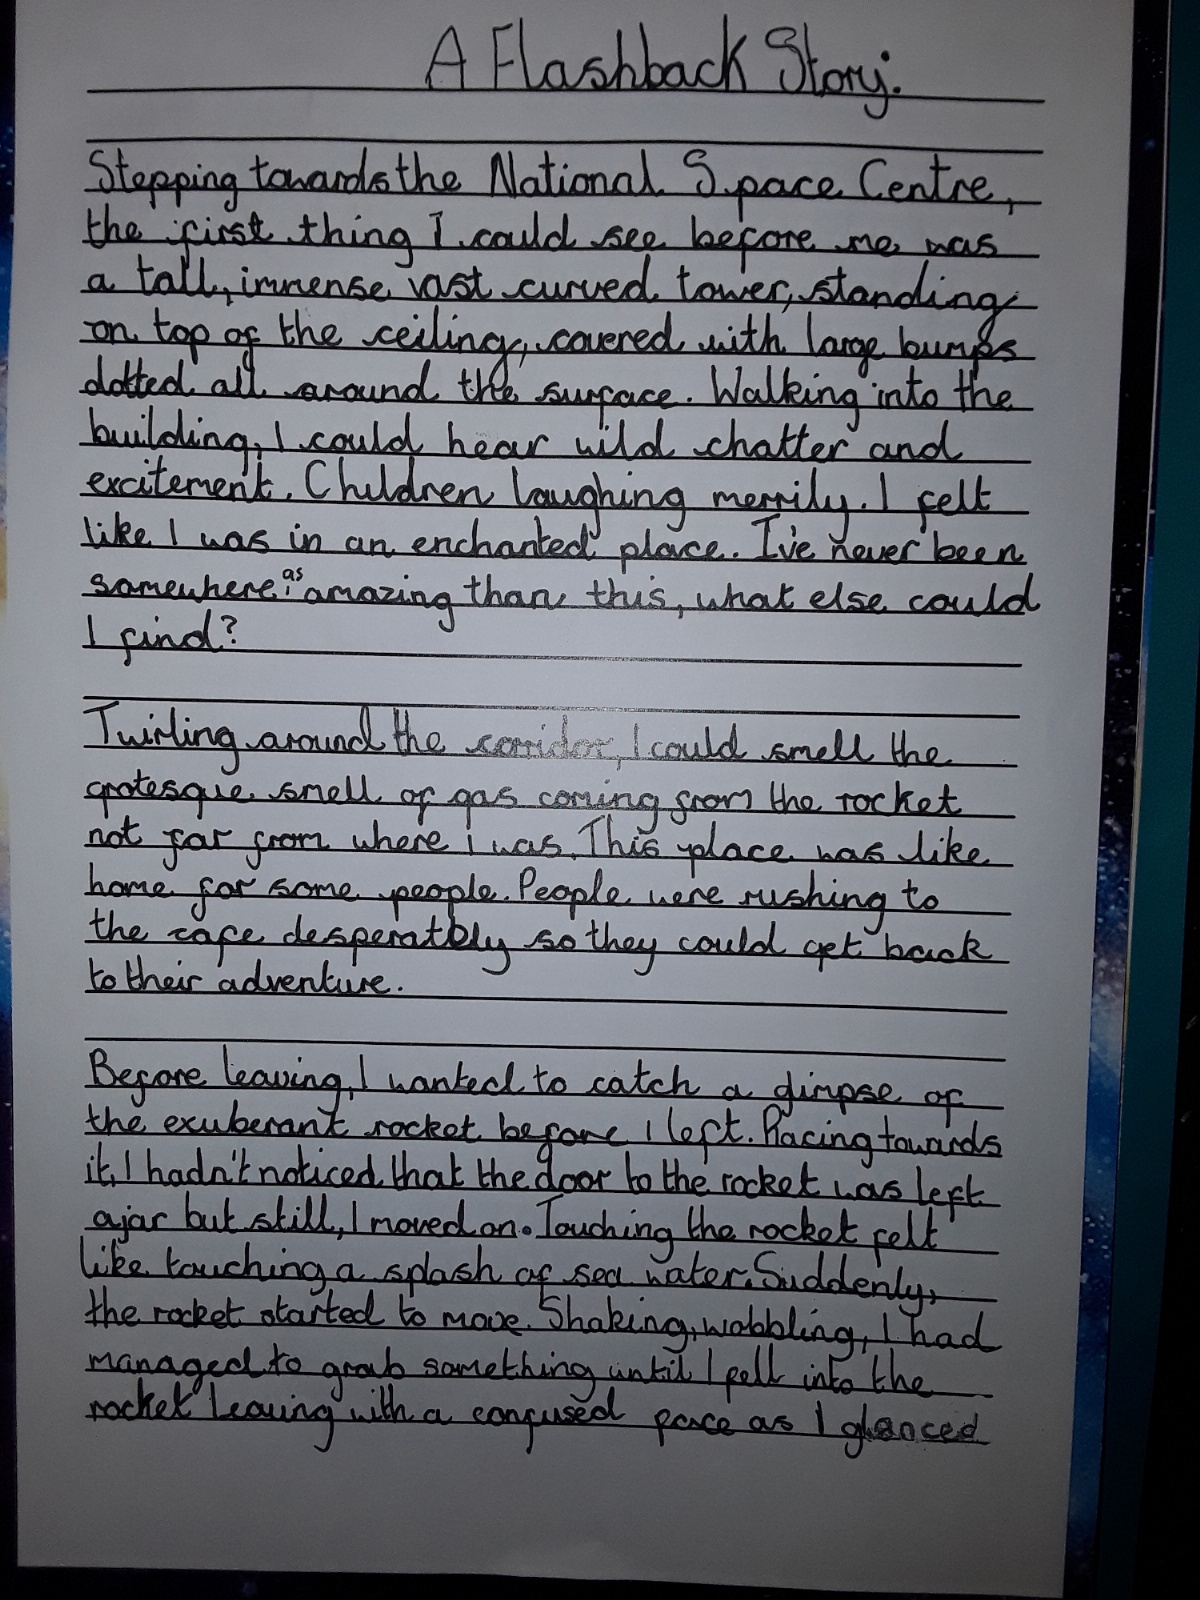 A Flashback Story.
Stepping towards the National Space Centre,
the first thing I could see before me was
a tall, immense vast curved tower, standing
on top of the ceiling, covered with large bumps
dotted all around the surface. Walking into the
building, I could hear wild chatter and
excitement. Children laughing merrily. I felt
like I was in an enchanted place. I've never been
somewhere as amazing than this, what else could
I find?
Twirling around the corridor, I could smell the
grotesque smell of gas coming from the rocket
not far from where i was. This place was like
home for some people. People were rushing to
the cafe desperatbly so they could get back
to their adventure.
Before leaving, I wanted to catch a glimpse of
the exuberant rocket before I left. Racing towards
it, I hadn't noticed that the door to the rocket was left
ajar but still, I moved on. Touching the rocket felt
like touching a splash of sea water. Suddenly,
the rocket started to move. Shaking, wobbling, I had
managed to grab something until I fell into the
rocket leaving with a confused face as I glanced